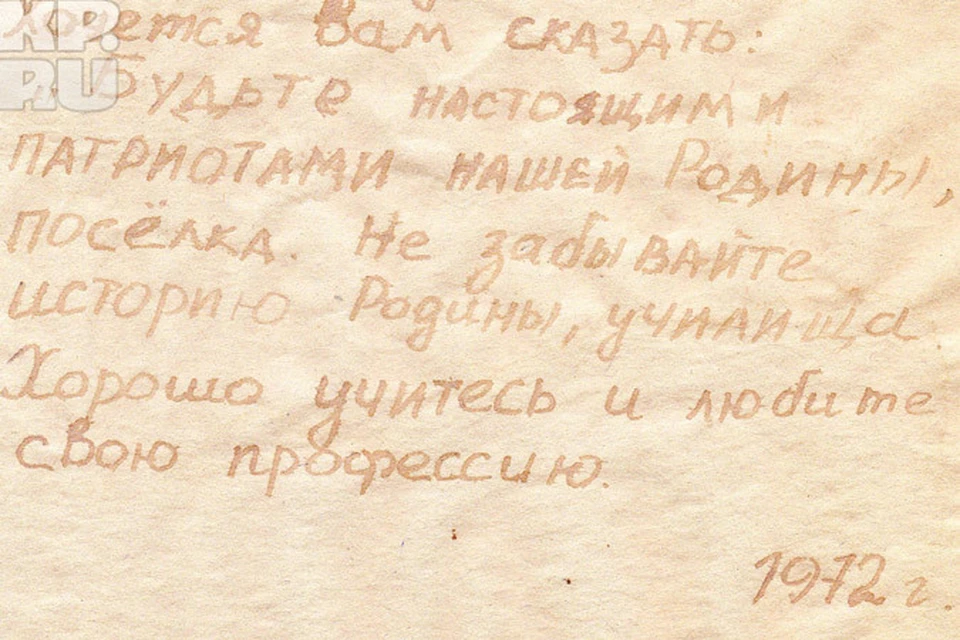 KP.
RU
Хочется Вам сказать:
Будьте настоящими
патриотами нашей Родины,
посёлка. Не забывайте
историю Родины, училища
Хорошо учитесь и любите
свою профессию.
1972 г.